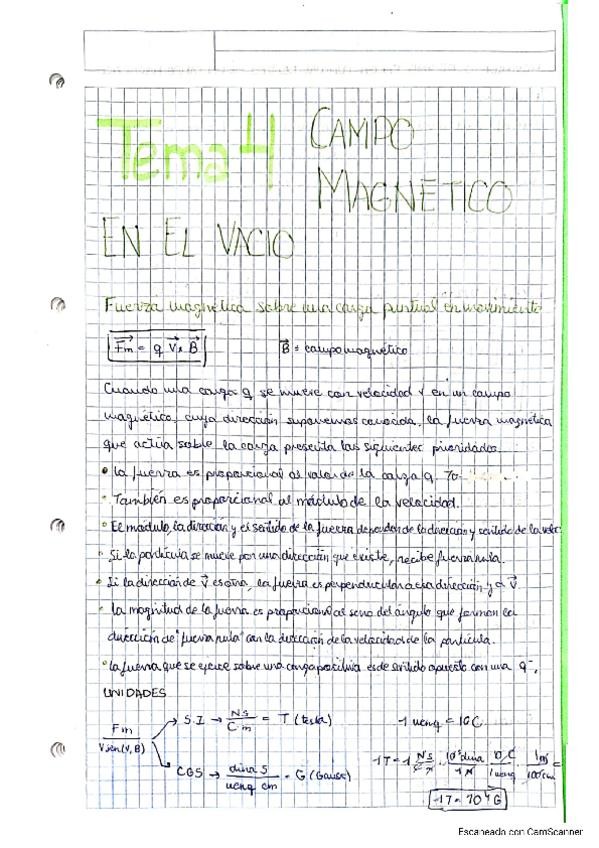 Tema 4 CAMPO
MAGNÉTICO
EN EL VACIO
Fuerza magnética sobre una carga puntual en movimiento
Fm = q V x B    B = campo magnético
Cuando una carga q se mueve con velocidad v en un campo
magnético, cuya dirección suponemos conocida, la fuerza magnética
que actúa sobre la carga presenta las siguientes
• La fuerza es proporcional al valor de la carga q.
• También es proporcional al módulo de la velocidad.
• El módulo, la dirección y el sentido de la fuerza dependen de la dirección y sentido de la veloc
• Si la partícula se mueve por una dirección que existe, recibe fuerza nula.
• Si la dirección de V es otra, la fuerza es perpendicular a esa dirección y a V.
• La magnitud de la fuerza es proporcional al seno del ángulo que forman la
dirección de "fuerza nula" con la dirección de la velocidad de la partícula.
• La fuerza que se ejerce sobre una carga positiva es de sentido opuesto con una q⁻.
UNIDADES
Fm / V sen(V, B) → S.I → Ns / C m = T (tesla)    1 uemq = 10C
→ CGS → dina s / uemq cm = G (Gauss)    1T = 1 Ns / C m · 10⁵ dina / 1N · 10 C / 1 uemq · 1m / 100 cm =
1T = 10⁴ G
Escaneado con CamScanner